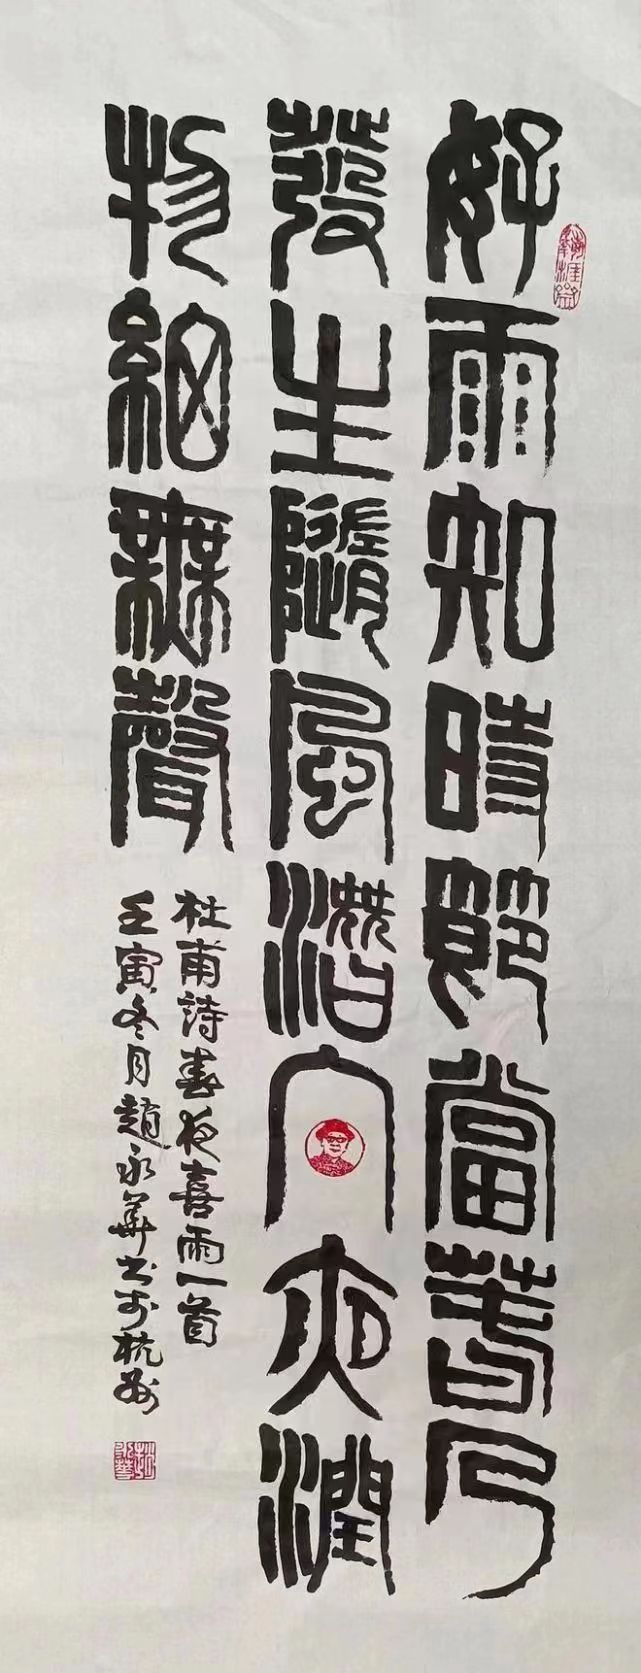 好雨知時節當春乃
發生隨風潛入夜潤
物細無聲
杜甫詩春夜喜雨一首
壬寅冬月趙永華書於杭州